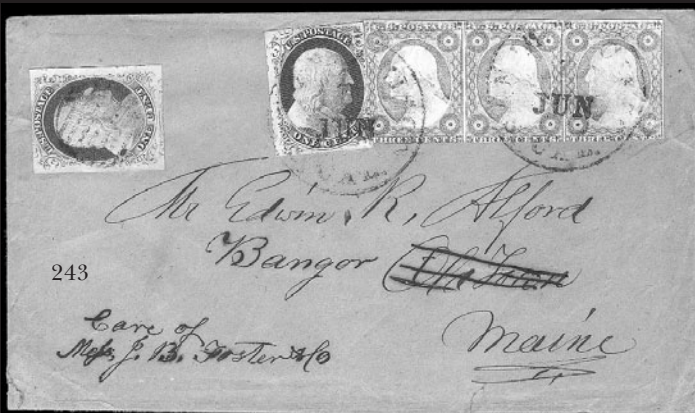 U.S. POSTAGE
ONE CENT
U.S. POSTAGE
ONE CENT
THREE CENTS
THREE CENTS
THREE CENTS
JUN
JUN
CAL.
CAL.
Mr Edwin R. Alford
Bangor Old Town
243
Maine
Care of
Mess J. B. Foster & Co